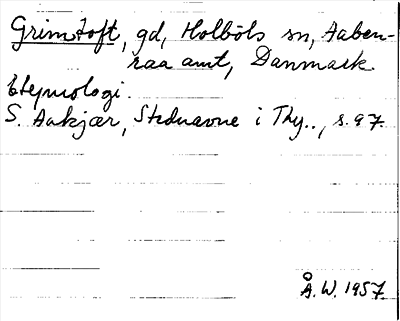 Grimtoft, gd, Holböls sn, Aaben-
raa amt, Danmark.
Etymologi.
S. Aakjær, Stednavne i Thy.., s. 97.
Å. W. 1957.